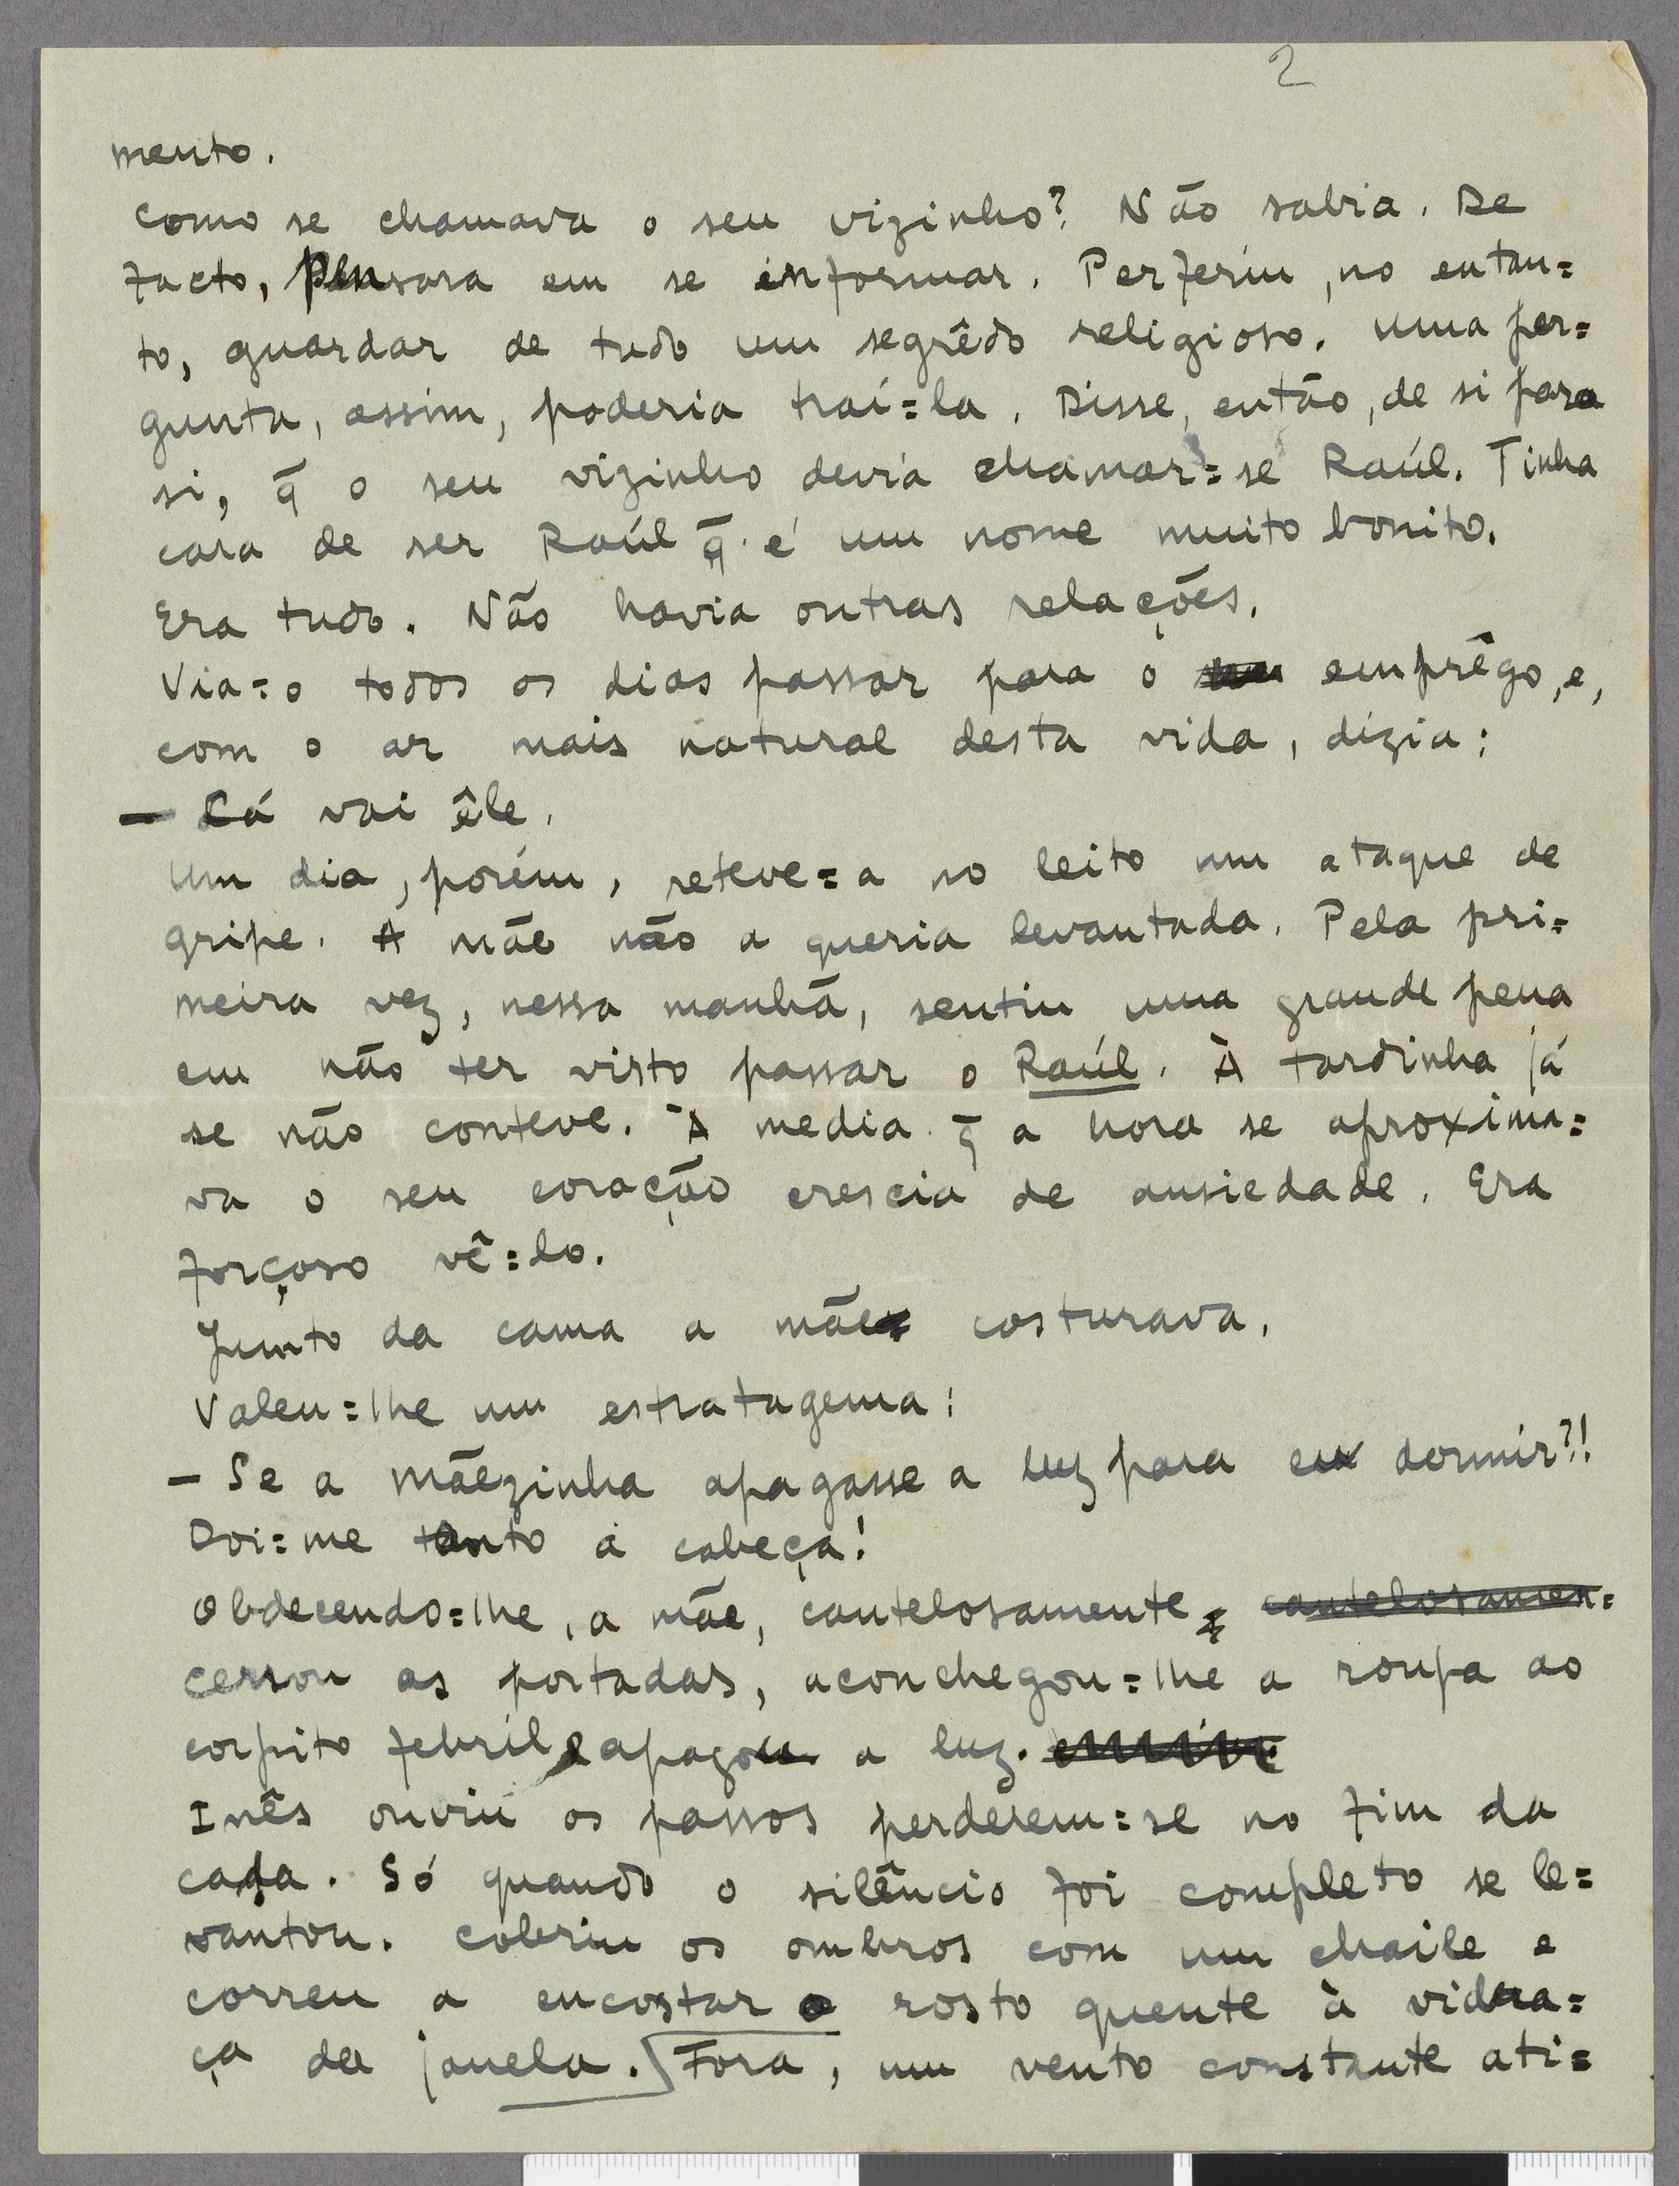 2
mento.
Como se chamava o seu vizinho? Não sabia. De
facto, pensara em se informar. Perferiu, no entan=
to, guardar de tudo um segrêdo religioso. Uma per=
gunta, assim, poderia traí=la. Disse, então, de si para
si, q̄ o seu vizinho devia chamar=se Raúl. Tinha
cara de ser Raúl q̄ é um nome muito bonito.
Era tudo. Não havia outras relações.
Via=o todos os dias passar para o emprêgo, e,
com o ar mais natural desta vida, dizia:
— Lá vai êle.
Um dia, porém, reteve=a no leito um ataque de
gripe. A mãe não a queria levantada. Pela pri=
meira vez, nessa manhã, sentiu uma grande pena
em não ter visto passar o Raúl. À tardinha já
se não conteve. À media q̄ a hora se aproxima=
va o seu coração crescia de ansiedade. Era
forçoso vê=lo.
Junto da cama a mãe costurava.
Valeu=lhe um estratagema:
— Se a mãezinha apagasse a luz para eu dormir?!
Doi=me tanto a cabeça!
Obdecendo=lhe, a mãe, cautelosamente, cautelosamen=
cerrou as portadas, aconchegou=lhe a roupa ao
corpito febril e apagou a luz.
Inês ouviu os passos perderem=se no fim da
casa. Só quando o silêncio foi completo se le=
vantou. Cobriu os ombros com um chaile e
correu a encostar o rosto quente à vidra=
ça da janela. Fora, um vento constante ati=